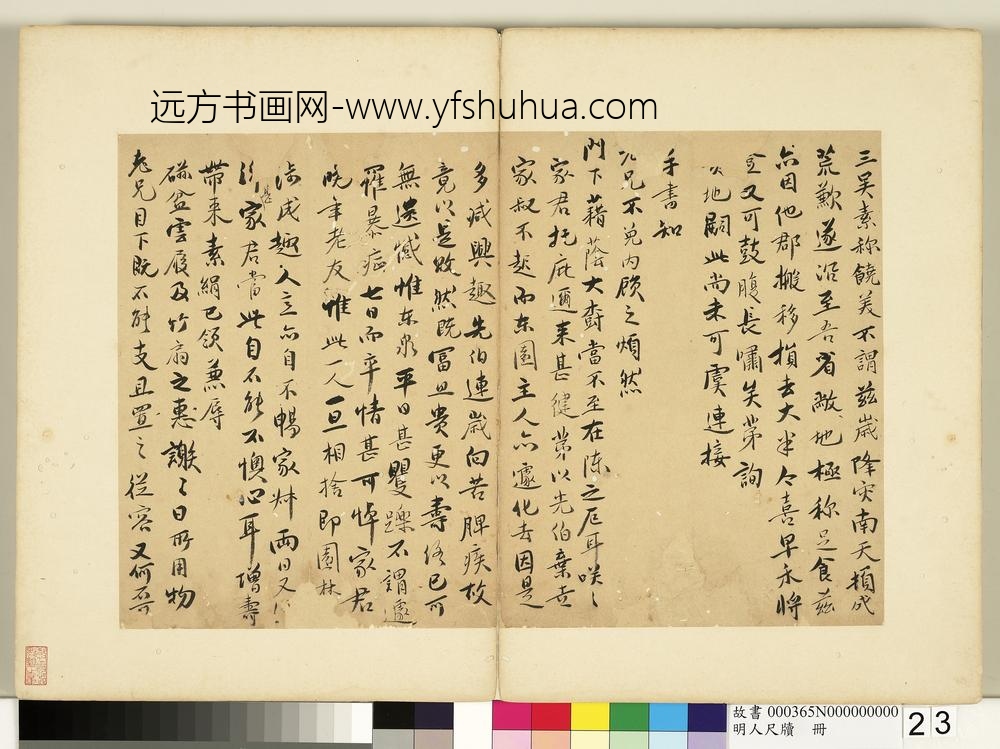 远方书画网-www.yfshuhua.com
三吴素称饒美不謂兹歲降灾南天頓成
荒歉遂沿至吾省敝地極称足食兹
亦因他郡搬移損去大半今喜早禾将
登又可鼓腹長嘯矣第詢
地嗣此尚未可虞連接
手書知
九兄不免内顾之煩然
門下藉蔭大樹當不至在陈之厄耳咲〻
家君托庇邇来甚健第以先伯棄世
家叔不起而东園主人亦遽化去因是
多减興趣先伯連歲向苦脾疾故
竟以是败然既冨且贵更以壽终已可
無遗憾惟东泉平日甚矍鑠不謂遽
罹暴症七日而卒情甚可悼家君
晚年老友惟此一人一旦相捨即園林
涉成趣入之亦自不暢家叔兩日又
家君當此自不能不懊心耳增壽
帶来素絹已领兼辱
磁盆雲履及竹扇之惠謝〻日所用物
老兄目下既不能支且置之從容又何不可
故書 000365N000000000
明人尺牘 冊
23